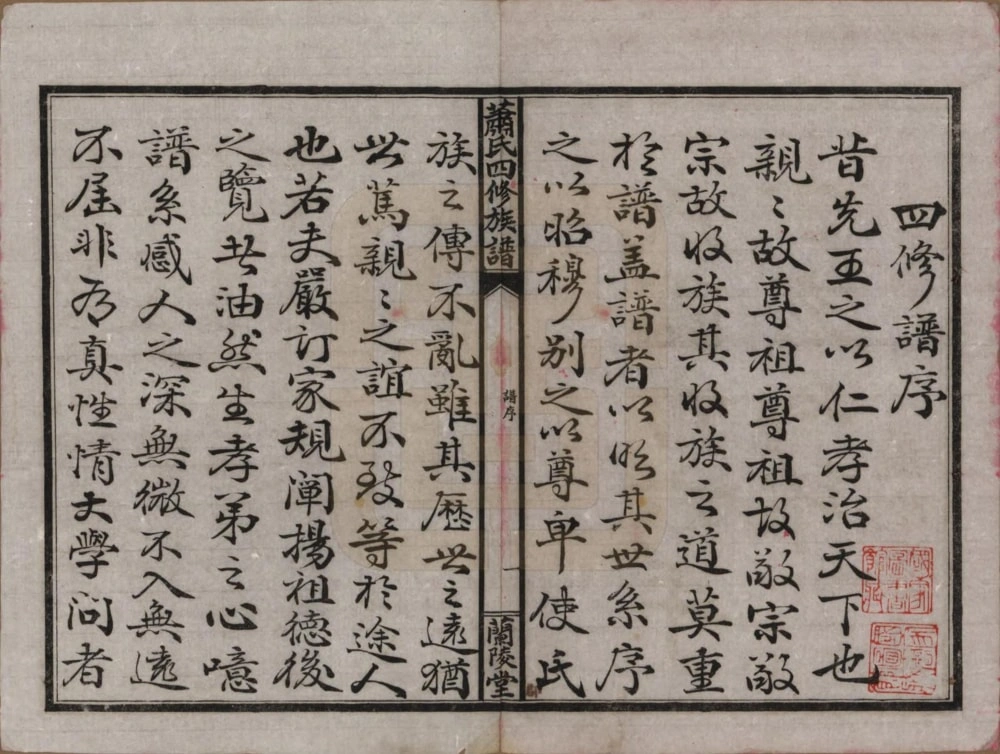 四修譜序
昔先王之以仁孝治天下也
親〻故尊祖尊祖故敬宗敬
宗故收族其收族之道莫重
於譜蓋譜者以明其世系序
之以昭穆別之以尊卑使氏
蕭氏四修族譜
譜序
一
蘭陵堂
族之傳不亂雖其歷世之遠猶
此篤親〻之誼不致等於途人
也若夫嚴訂家規闡揚祖德後
之覽者油然生孝弟之心噫
譜系感人之深無微不入無遠
不屆非有真性情大學問者